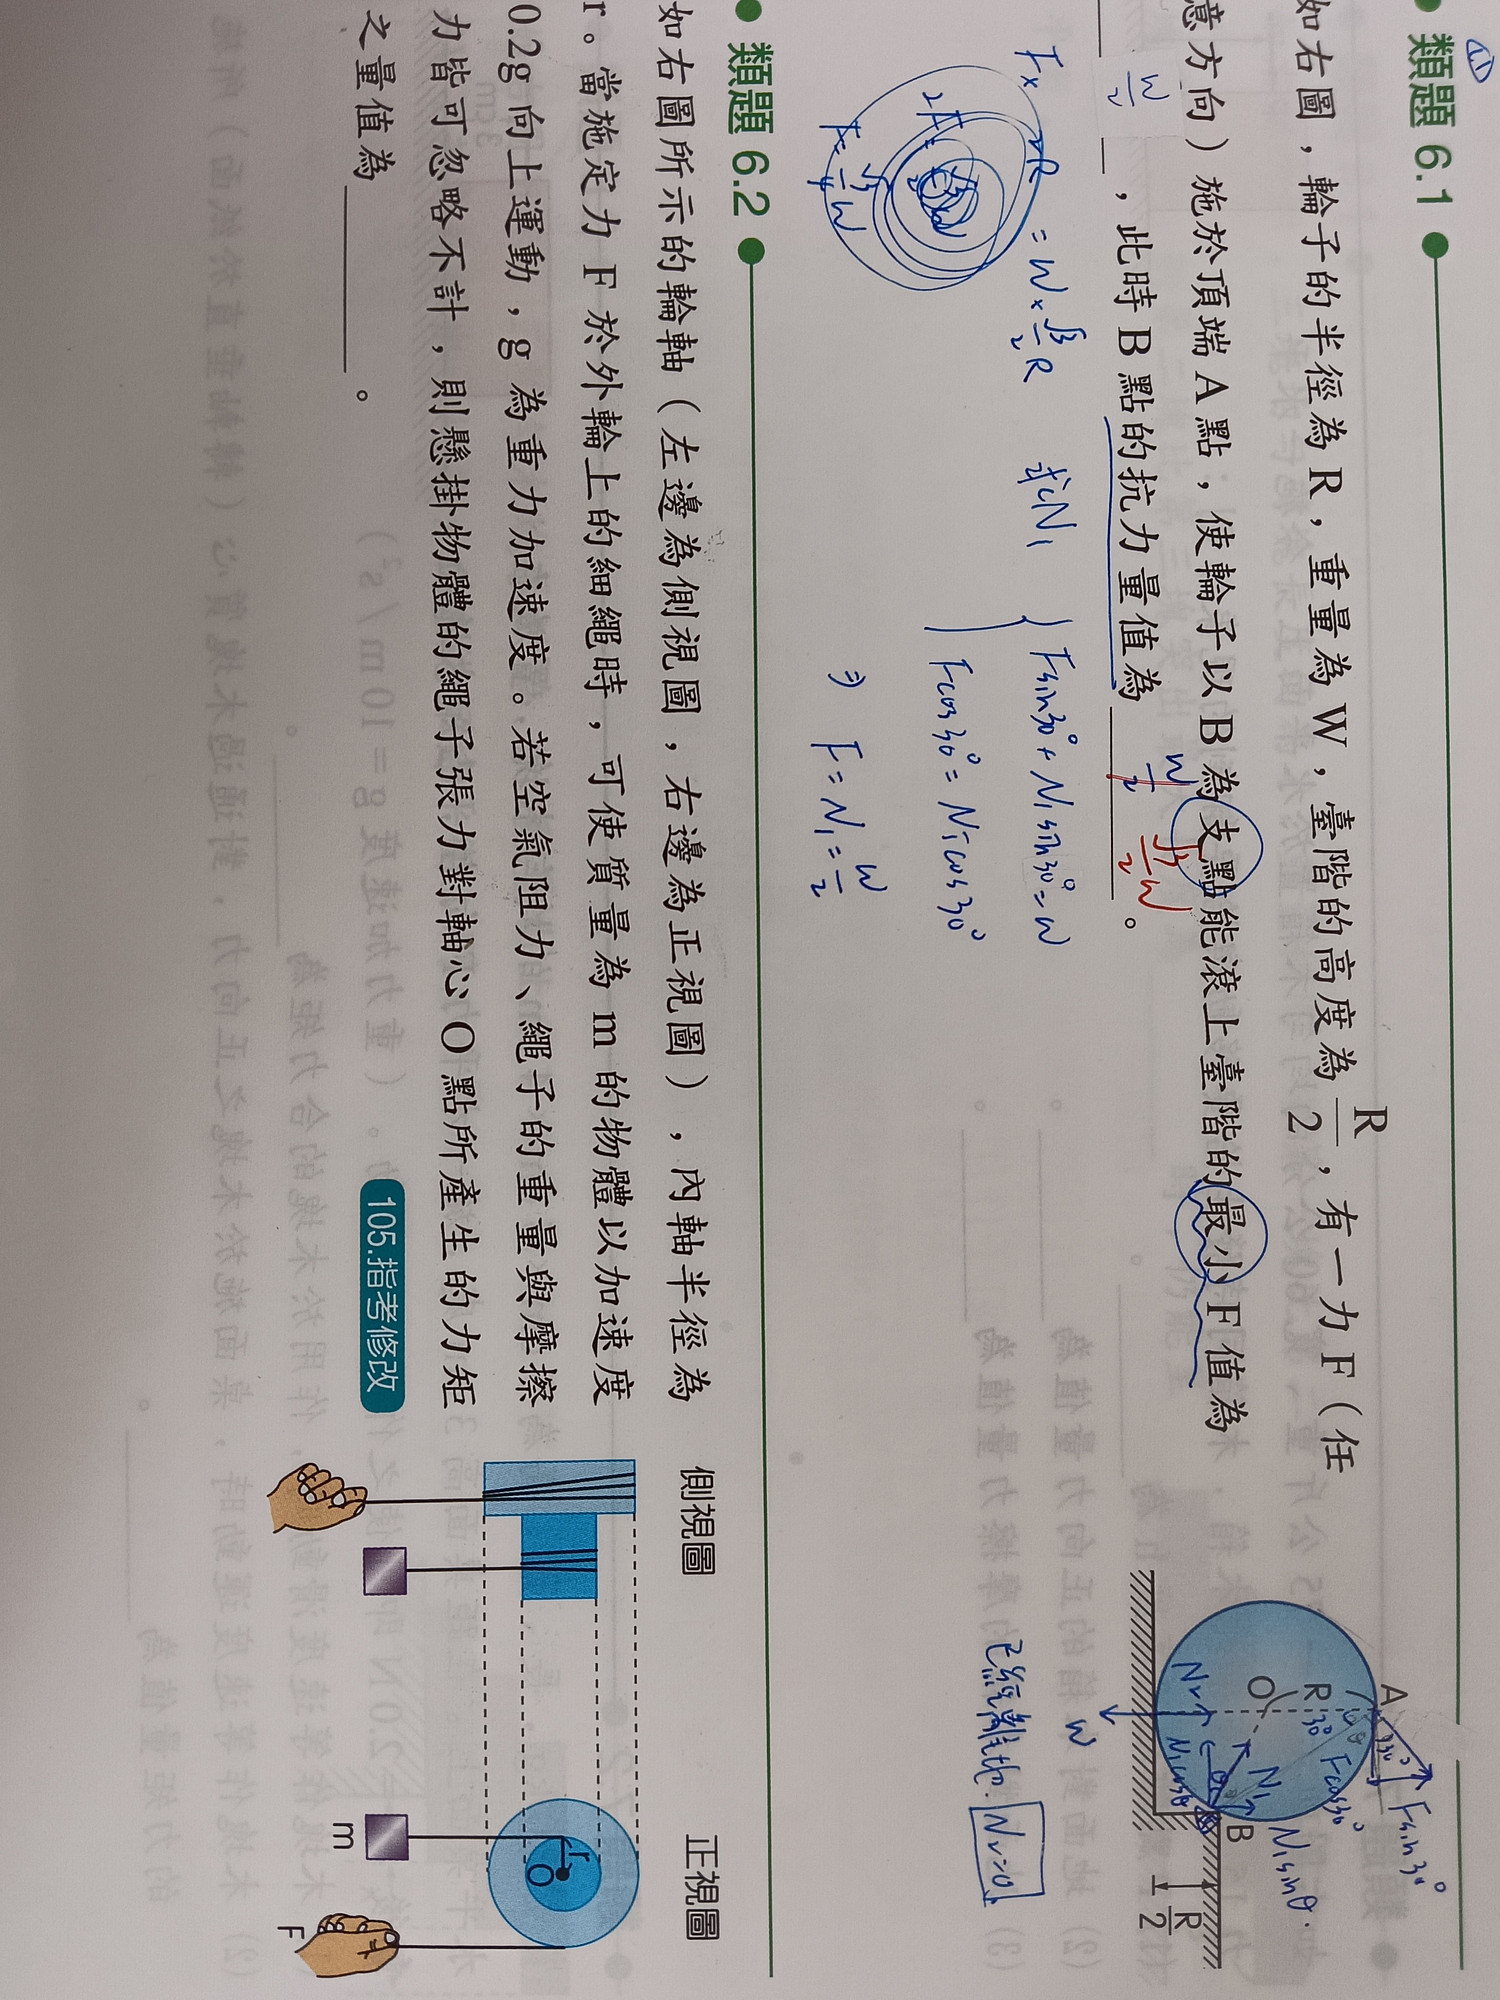 類題 6.1
如右圖，輪子的半徑為 R，重量為 W，臺階的高度為 R/2，有一力 F（任
意方向）施於頂端 A 點，使輪子以 B 為支點能滾上臺階的最小 F 值為
W/2，此時 B 點的抗力量值為 W/2 √3/2 W。
F × 2R = W × √3/2 R
F = √3/4 W
求 N₁
Fsin30° + N₁sin30° = W
Fcos30° = N₁cos30°
⇒ F = N₁ = W/2
A
30°
Fsin30°
Fcos30°
R
30°
θ
O
N₁
N₁sinθ
N₁cosθ
B
R/2
W
已經離地
N₂=0
類題 6.2
如右圖所示的輪軸（左邊為側視圖，右邊為正視圖），內軸半徑為
r。當施定力 F 於外輪上的細繩時，可使質量為 m 的物體以加速度
0.2g 向上運動，g 為重力加速度。若空氣阻力、繩子的重量與摩擦
力皆可忽略不計，則懸掛物體的繩子張力對軸心 O 點所產生的力矩
之量值為＿＿＿＿。
105.指考修改
側視圖
正視圖
r
O
m
F